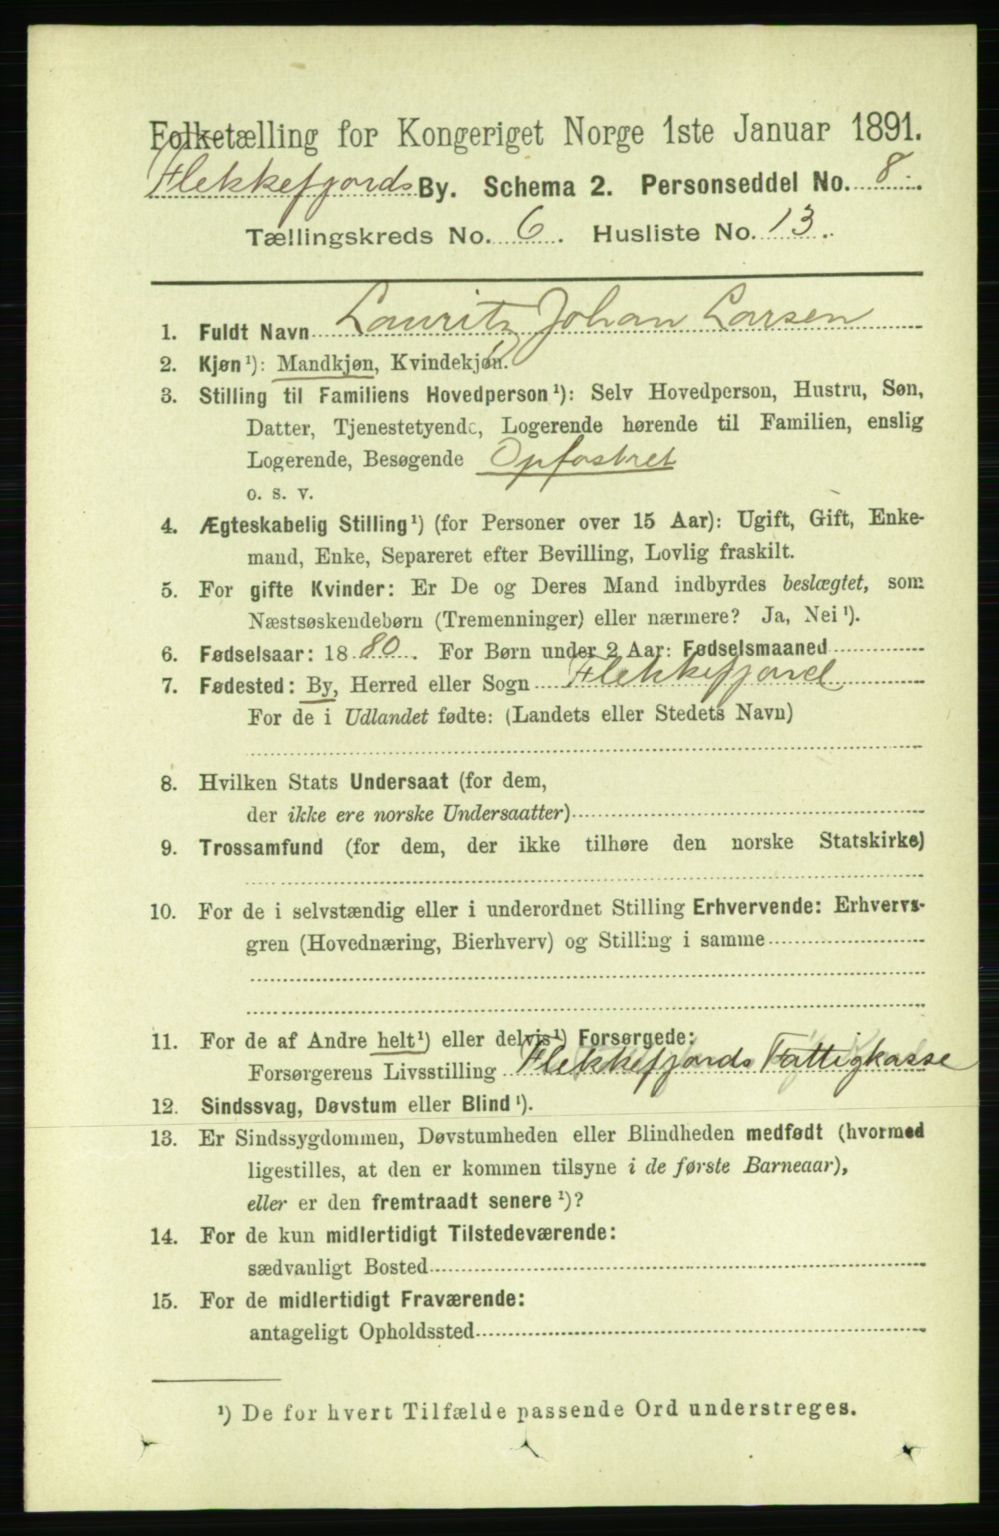 Folketælling for Kongeriget Norge 1ste Januar 1891.
Flekkefjords By. Schema 2. Personseddel No. 8.
Tællingskreds No. 6. Husliste No. 13.
1. Fuldt Navn Lauritz Johan Larsen
2. Kjøn ¹): Mandkjøn, Kvindekjøn.
3. Stilling til Familiens Hovedperson ¹): Selv Hovedperson, Hustru, Søn,
Datter, Tjenestetyende, Logerende hørende til Familien, enslig
Logerende, Besøgende Opfostret
o. s. v.
4. Ægteskabelig Stilling ¹) (for Personer over 15 Aar): Ugift, Gift, Enke-
mand, Enke, Separeret efter Bevilling, Lovlig fraskilt.
5. For gifte Kvinder: Er De og Deres Mand indbyrdes beslægtet, som
Næstsøskendebørn (Tremenninger) eller nærmere? Ja, Nei ¹).
6. Fødselsaar: 1880. For Børn under 2 Aar: Fødselsmaaned
7. Fødested: By, Herred eller Sogn Flekkefjord
For de i Udlandet fødte: (Landets eller Stedets Navn)
8. Hvilken Stats Undersaat (for dem,
der ikke ere norske Undersaatter)
9. Trossamfund (for dem, der ikke tilhøre den norske Statskirke)
10. For de i selvstændig eller i underordnet Stilling Erhvervende: Erhvervs-
gren (Hovednæring, Bierhverv) og Stilling i samme
11. For de af Andre helt ¹) eller delvis ¹) Forsørgede:
Forsørgerens Livsstilling Flekkefjords Fattigkasse
12. Sindssvag, Døvstum eller Blind ¹).
13. Er Sindssygdommen, Døvstumheden eller Blindheden medfødt (hvormed
ligestilles, at den er kommen tilsyne i de første Barneaar),
eller er den fremtraadt senere ¹)?
14. For de kun midlertidigt Tilstedeværende:
sædvanligt Bosted
15. For de midlertidigt Fraværende:
antageligt Opholdssted
¹) De for hvert Tilfælde passende Ord understreges.